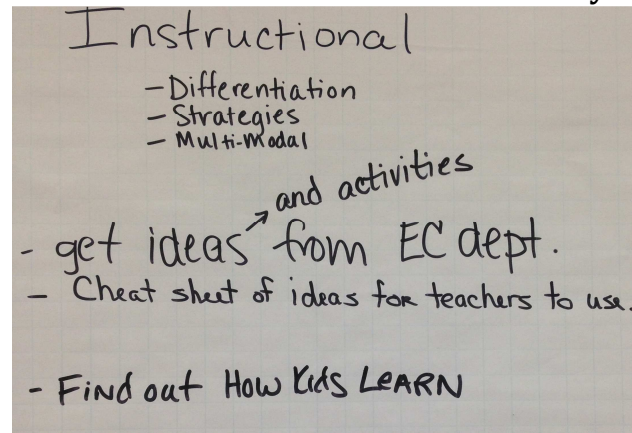 Instructional
- Differentiation
- Strategies
- Multi-Modal
and activities
- get ideas from EC dept.
- Cheat sheet of ideas for teachers to use.
- Find out How Kids LEARN